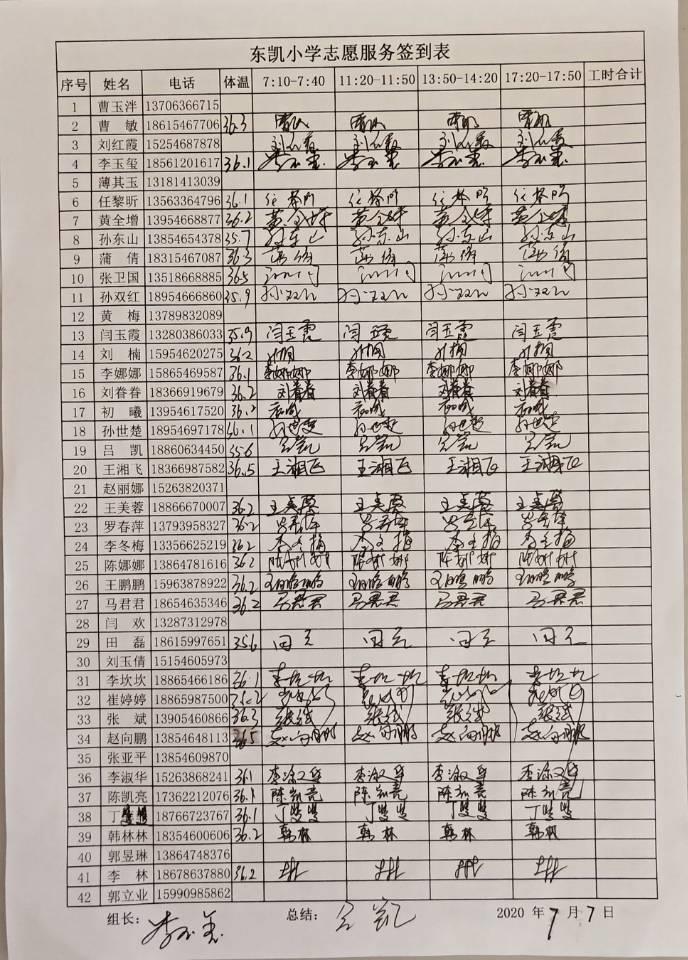 东凯小学志愿服务签到表
序号 姓名 电话 体温 7:10-7:40 11:20-11:50 13:50-14:20 17:20-17:50 工时合计
1 曹玉泮 13706366715
2 曹 敏 18615467706 36.3
3 刘红霞 15254687878
4 李玉玺 18561201617 36.1 李玉玺 李玉玺 李玉玺 李玉玺
5 薄其玉 13181413039
6 任黎昕 13563364796 36.1
7 黄全增 13954668877 36.2 黄全增 黄全增 黄全增 黄全增
8 孙东山 13854654378 35.7 孙东山 孙东山 孙东山 孙东山
9 蒲 倩 18315467087 36.3 蒲倩 蒲倩 蒲倩 蒲倩
10 张卫国 13518668885 36.5
11 孙双红 18954666860 35.9 孙双红 孙双红 孙双红 孙双红
12 黄 梅 13789832089
13 闫玉霞 13280386033 35.9 闫玉霞 闫玉霞 闫玉霞 闫玉霞
14 刘 楠 15954620275 36.2 刘楠 刘楠 刘楠 刘楠
15 李娜娜 15865469587 36.1 李娜娜 李娜娜 李娜娜 李娜娜
16 刘眷眷 18366919679 36.2 刘眷眷 刘眷眷 刘眷眷 刘眷眷
17 初 曦 13954617520
18 孙世楚 18954697178 36.1 孙世楚 孙世楚 孙世楚 孙世楚
19 吕 凯 18860634450 35.6 吕凯 吕凯 吕凯 吕凯
20 王湘飞 18366987582 36.5 王湘飞 王湘飞 王湘飞 王湘飞
21 赵丽娜 15263820371
22 王美蓉 18866670007 36.2 王美蓉 王美蓉 王美蓉 王美蓉
23 罗春萍 13793958327 36.2 罗春萍 罗春萍 罗春萍 罗春萍
24 李冬梅 13356625219 36.2 李冬梅 李冬梅 李冬梅 李冬梅
25 陈娜娜 13864781616 36.2 陈娜娜 陈娜娜 陈娜娜 陈娜娜
26 王鹏鹏 15963878922 36.2 王鹏鹏 王鹏鹏 王鹏鹏 王鹏鹏
27 马君君 18654635346 36.2 马君君 马君君 马君君 马君君
28 闫 欢 13287312978
29 田 磊 18615997651 35.6 田磊 田磊 田磊 田磊
30 刘玉倩 15154605973
31 李坎坎 18865466186 36.1 李坎坎 李坎坎 李坎坎 李坎坎
32 崔婷婷 18865987500
33 张 斌 13905460866 36.3 张斌 张斌 张斌 张斌
34 赵向鹏 13854648113 36.5 赵向鹏 赵向鹏 赵向鹏 赵向鹏
35 张亚平 13854609870
36 李淑华 15263868241 36.1 李淑华 李淑华 李淑华 李淑华
37 陈凯亮 17362212076 36.1 陈凯亮 陈凯亮 陈凯亮 陈凯亮
38 18766723767 36.1
39 韩林林 18354600606 36.2 韩林 韩林 韩林 韩林
40 郭昱琳 13864748376
41 李 林 18678637880 36.2
42 郭立业 15990985862
组长: 李玉玺 总结: 吕凯 2020 年 7 月 7 日